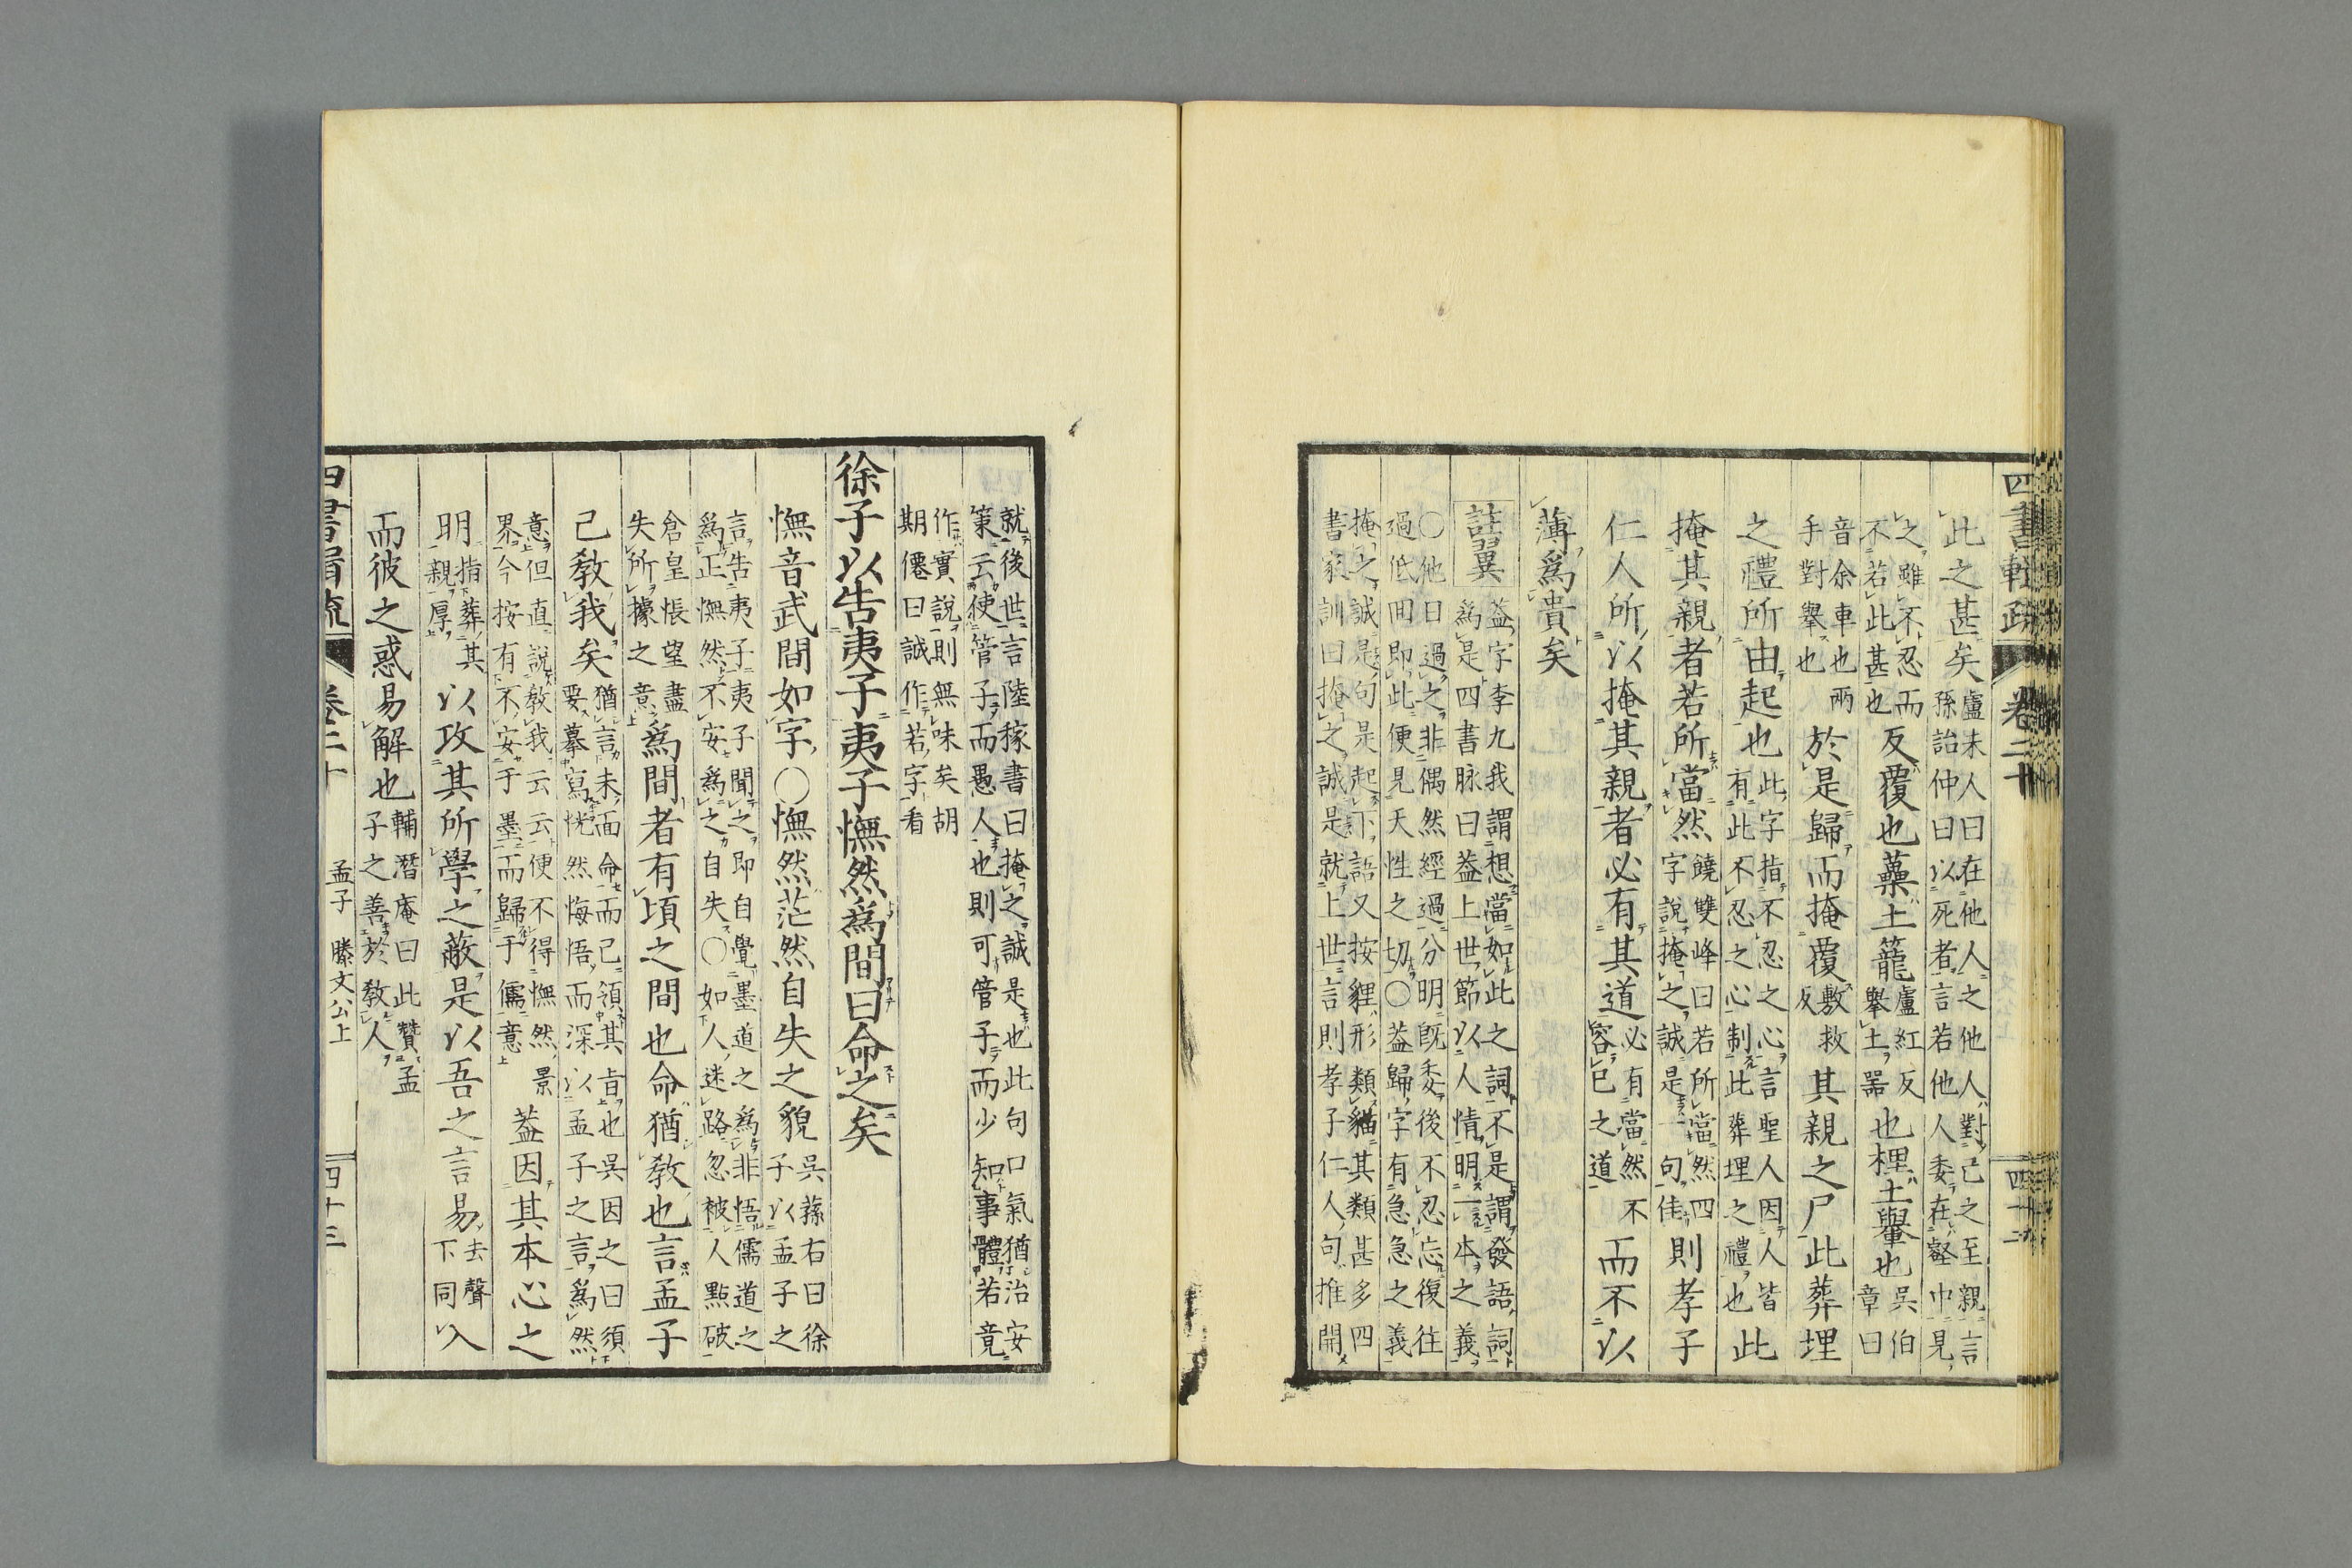 四書輯疏 卷二十 四十二
此之甚矣盧未人曰在他人之他人對己之至親言
孫詒仲曰以死者言若他人委在壑中見
之雖不忍而
不若此甚也反覆也虆土籠盧紅反
舉土器也梩土轝也吳伯
章曰
音余車也兩
手對舉也於是歸而掩覆敷救
反其親之尸此葬埋
之禮所由起也此字指不忍之心言聖人因人皆
有此不忍之心制此葬埋之禮也此
掩其親者若所當然饒雙峰曰若所當然四
字說掩之誠是句佳則孝子
仁人所以掩其親者必有其道必有當然不
容已之道而不以
薄爲貴矣
註翼蓋字李九我謂想當如此之詞不是謂發語詞
爲是四書脉曰蓋上世節以人情明一本之義
○他日過之非偶然經過分明旣委後不忍忘復往
過低囬即此便見天性之切○蓋歸字有急急之義
掩之誠是句是起下語又按貍形類貓其類甚多四
書家訓曰掩之誠是就上世言則孝子仁人句推開
就後世言陸稼書曰掩之誠是也此句口氣猶治安
策云使管子而愚人也則可管子而少知事體若竟
作實說則無味矣胡
期僊曰誠作若字看
徐子以告夷子夷子憮然爲間曰命之矣
憮音武間如字○憮然茫然自失之貌吳蓀右曰徐
子以孟子之
言告夷子夷子聞之即自覺墨道之爲非悟儒道之
爲正憮然不安爲之自失○如人迷路忽被人點破
倉皇悵望盡
失所據之意爲間者有頃之間也命猶敎也言孟子
己敎我矣猶言未面命而已領其旨也吳因之曰須
要摹寫恍然悔悟而深以孟子之言爲然
意但直說敎我云云便不得憮然景
界今按有不安于墨而歸于儒意蓋因其本心之
明指葬其
親厚以攻其所學之蔽是以吾之言易去聲
下同入
而彼之惑易解也輔潛庵曰此贊孟
子之善於敎人
四書輯疏 卷二十 孟子 滕文公上 四十三